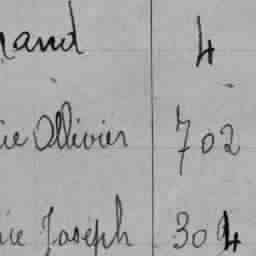 nand 4
ie Ollivier 702
ie Joseph 304